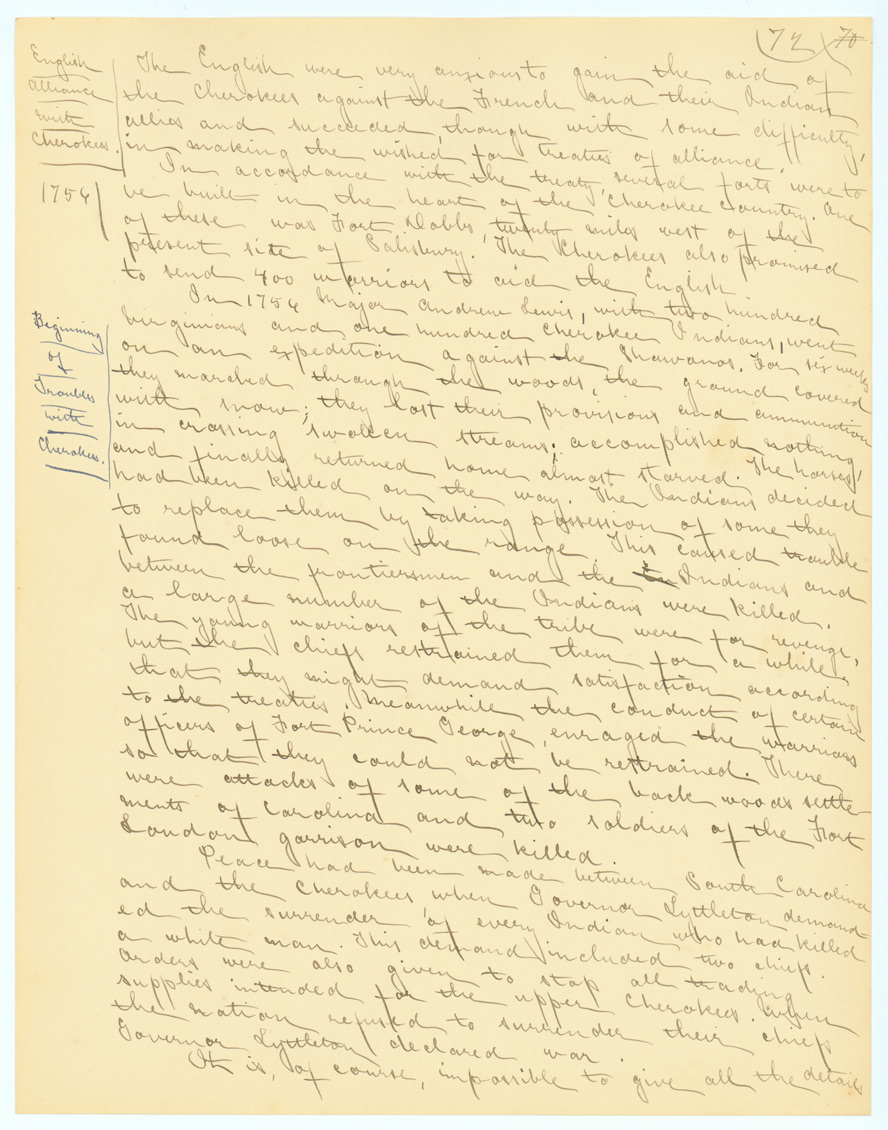 72 70
English
Alliance
with
Cherokees.
1756
The English were very anxious to gain the aid of
the Cherokees against the French and their Indian
allies and succeeded, though with some difficulty,
in making the wished for treaties of alliance.
In accordance with the treaty, several forts were to
be built in the heart of the Cherokee country. One
of these was Fort Dobbs, twenty miles west of the
present site of Salisbury. The Cherokees also promised
to send 400 warriors to aid the English
In 1756 Major Andrew Lewis, with two hundred
Virginians and one hundred Cherokee Indians, went
on an expedition against the Shawanos. For six weeks
they marched through the woods, the ground covered
with snow; they lost their provisions and ammunition
in crossing swollen streams; accomplished nothing,
and finally returned home almost starved. The horses
had been killed on the way. The Indians decided
to replace them by taking possession of some they
found loose on the range. This caused trouble
between the frontiersmen and the Indians and
a large number of the Indians were killed.
The young warriors of the tribe were for revenge,
but the chiefs restrained them for a while,
that they might demand satisfaction according
to the treaties. Meanwhile the conduct of certain
officers of Fort Prince George, enraged the warriors
so that they could not be restrained. There
were attacks of some of the back woods settle-
ments of Carolina and two soldiers of the Fort
London garrison were killed.
Beginning
of
Troubles
with
Cherokees.
Peace had been made between South Carolina
and the Cherokees when Governor Lyttleton demand-
ed the surrender of every Indian who had killed
a white man. This demand included two chiefs.
Orders were also given to stop all trading
supplies intended for the upper Cherokees. When
the nation refused to surrender their chiefs
Governor Lyttleton declared war.
It is, of course, impossible to give all the details